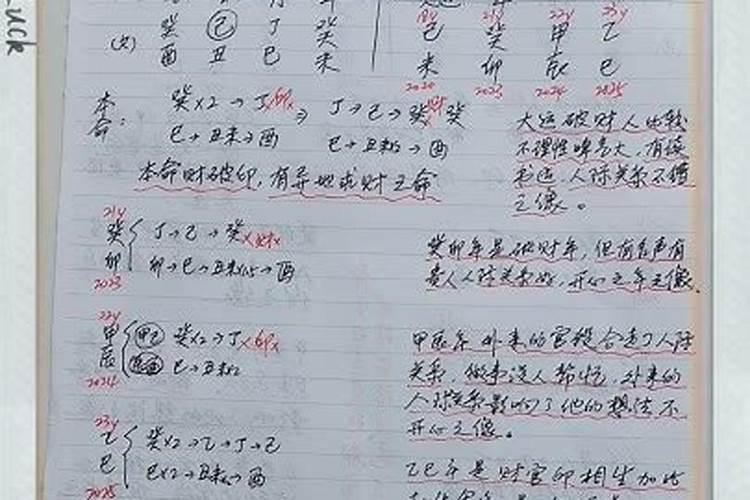 uck
癸 己 丁 癸
(女)
酉 丑 巳 未
18y 21y 22y 23y
己 癸 甲 乙
未 卯 辰 巳
2020 2023 2024 2025
本命:
癸x2→丁x印x ⇒ 丁→己→癸x财x 癸
巳→丑未→酉 巳→丑未→酉
本命财破印,有异地求财之命
大运破财人比较
不理性
人际关系不
之像。
21y
癸卯 { 丁→己→癸x财x
卯→巳→丑未→酉
2023
癸卯年是破财年,但有名声有
贵人人际关系好,开心之年之像.
22y
甲辰 { 甲己 癸x2→丁x印x
辰酉 巳→丑未
2024
甲辰年 外来的官杀合走了人际
关系,做事没人帮忙,外来的
人际关系影响了他的想法不
开心之像。
23y
乙巳 { 癸x2→乙→丁→己
巳x2→丑未→酉
2025
乙巳年是财官印相生加比